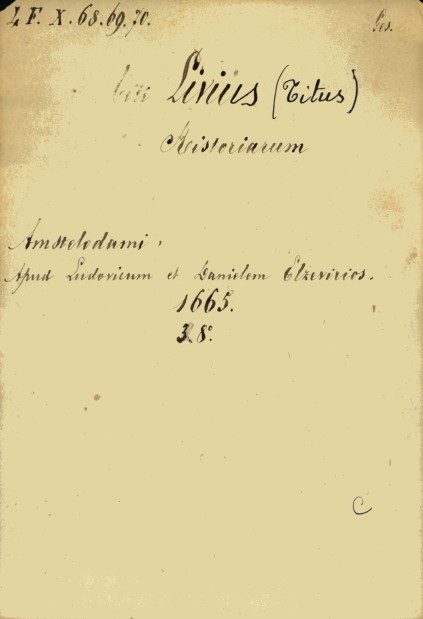 L F. X. 68. 69. 70.
Livius (Titus)
Historiarum
Amstelodami,
Apud Ludovicum et Danielem Elzevirios.
1665.
3 8°.
C